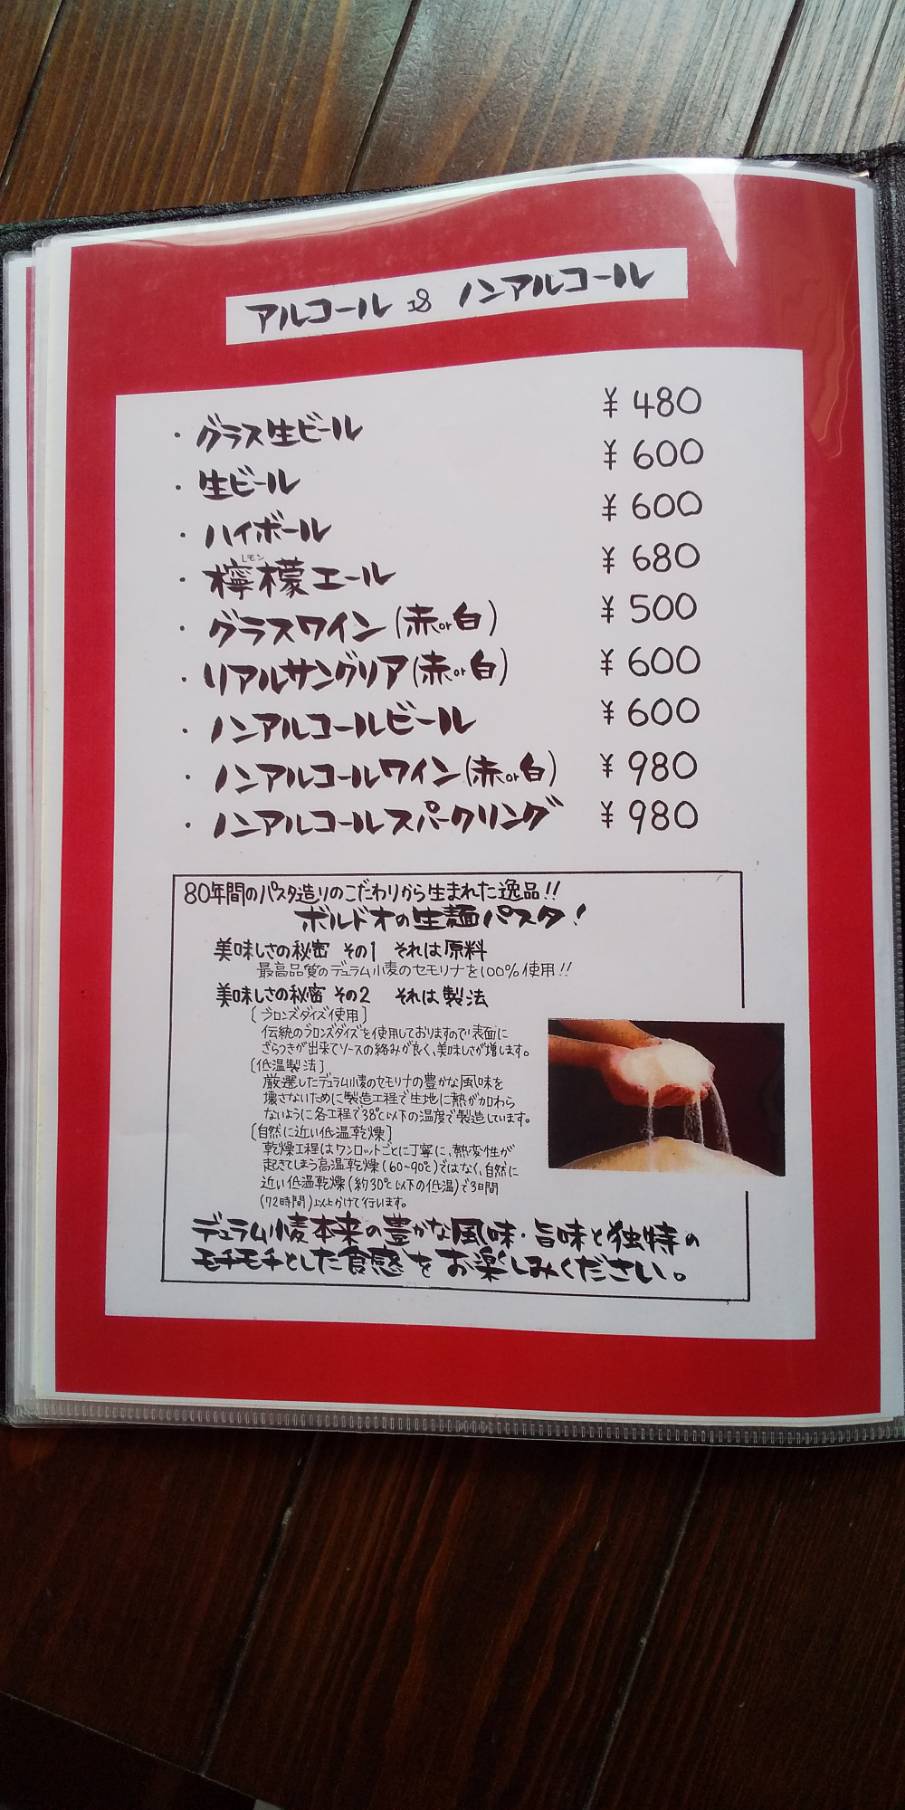 アルコール & ノンアルコール
・グラス生ビール ¥480
・生ビール ¥600
・ハイボール ¥600
レモン
・檸檬エール ¥680
・グラスワイン(赤or白) ¥500
・リアルサングリア(赤or白) ¥600
・ノンアルコールビール ¥600
・ノンアルコールワイン(赤or白) ¥980
・ノンアルコールスパークリング ¥980
80年間のパスタ造りのこだわりから生まれた逸品!!
ボルドオの生麺パスタ!
美味しさの秘密 その1 それは原料
最高品質のデュラム小麦のセモリナを100%使用!!
美味しさの秘密 その2 それは製法
[ブロンズダイズ使用]
伝統のブロンズダイズを使用しておりますので表面に
ざらつきが出来てソースの絡みが良く、美味しさが増します。
[低温製法]
厳選したデュラム小麦のセモリナの豊かな風味を
壊さないために製造工程で生地に熱が加わら
ないように各工程で38℃以下の温度で製造しています。
[自然に近い低温乾燥]
乾燥工程はワンロットごとに丁寧に、熱変性が
起きてしまう高温乾燥(60~90℃)ではなく、自然に
近い低温乾燥(約30℃以下の低温)で3日間
(72時間)以上かけて行います。
デュラム小麦本来の豊かな風味・旨味と独特の
モチモチとした食感をお楽しみください。